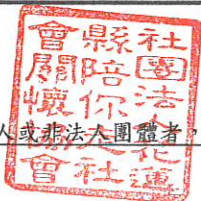 社團法人花蓮
縣陪你社
會關懷會
人或非法人團體者，